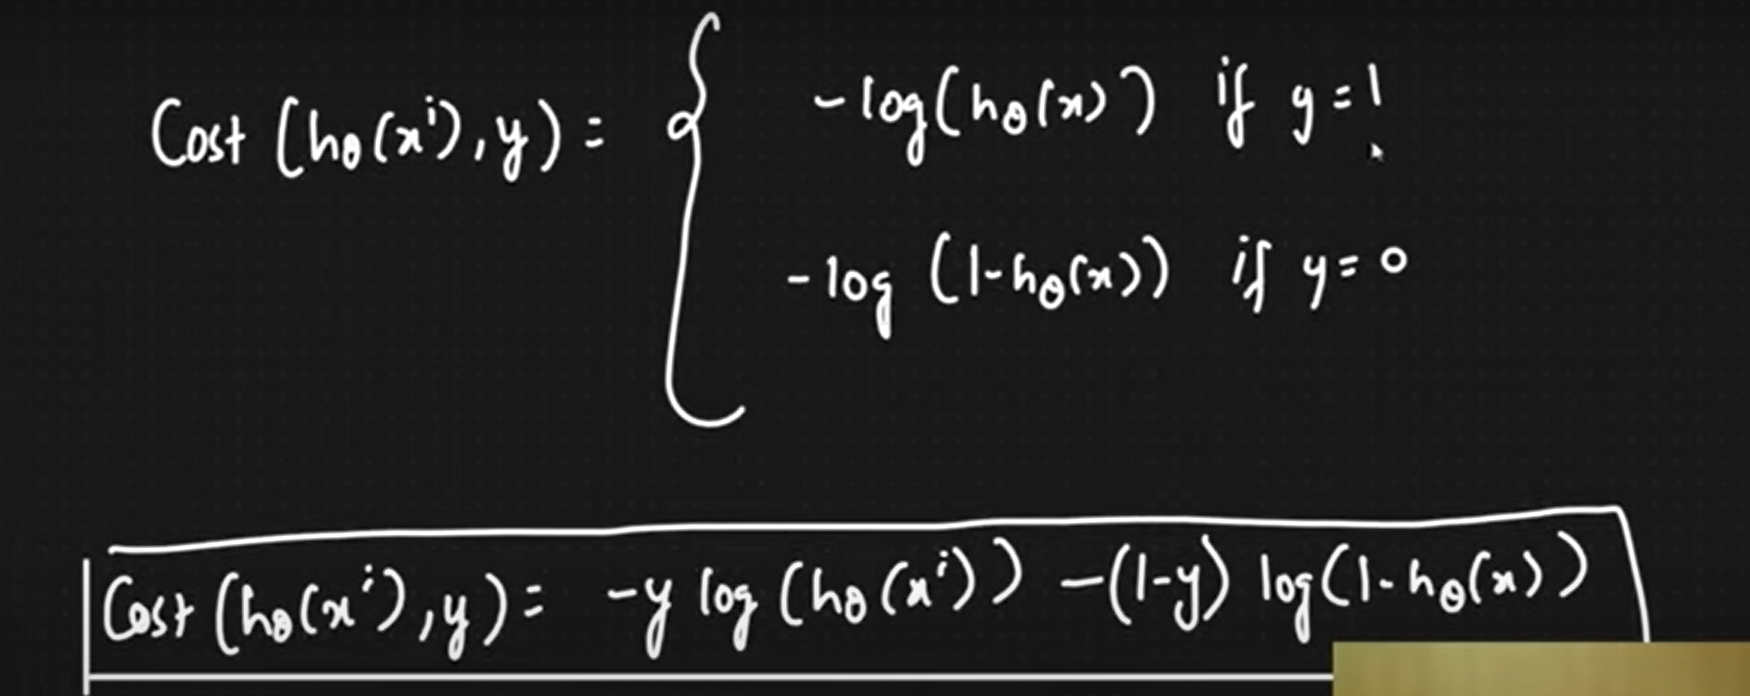 Cost (hθ(xⁱ), y) = { -log(hθ(x)) if y=1
-log (1-hθ(x)) if y=0
Cost (hθ(xⁱ), y) = -y log (hθ(xⁱ)) -(1-y) log(1-hθ(x))